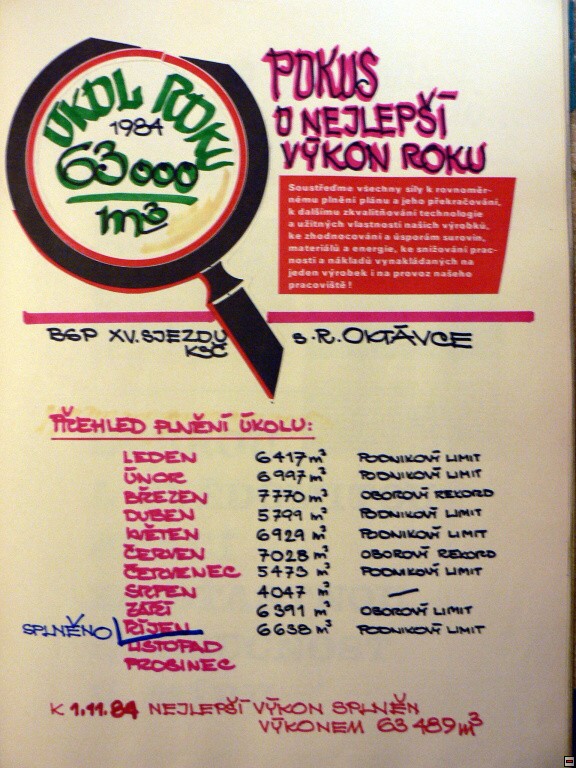 ÚKOL ROKU
1984
63000
m³
POKUS
O NEJLEPŠÍ
VÝKON ROKU
Soustřeďme všechny síly k rovnoměr-
nému plnění plánu a jeho překračování,
k dalšímu zkvalitňování technologie
a užitných vlastností našich výrobků,
ke zhodnocování a úsporám surovin,
materiálů a energie, ke snižování prac-
nosti a nákladů vynakládaných na
jeden výrobek i na provoz našeho
pracoviště!
BSP XV. SJEZDU KSČ
s. R. OKTÁVCE
PŘEHLED PLNĚNÍ ÚKOLU:
LEDEN 6417 m³ PODNIKOVÝ LIMIT
ÚNOR 6997 m³ PODNIKOVÝ LIMIT
BŘEZEN 7770 m³ OBOROVÝ REKORD
DUBEN 5799 m³ PODNIKOVÝ LIMIT
KVĚTEN 6929 m³ PODNIKOVÝ LIMIT
ČERVEN 7028 m³ OBOROVÝ REKORD
ČERVENEC 5473 m³ PODNIKOVÝ LIMIT
SRPEN 4047 m³ —
ZÁŘÍ 6391 m³ OBOROVÝ LIMIT
SPLNĚNO ŘÍJEN 6638 m³ PODNIKOVÝ LIMIT
LISTOPAD
PROSINEC
K 1.11.84 NEJLEPŠÍ VÝKON SPLNĚN
VÝKONEM 63 489 m³